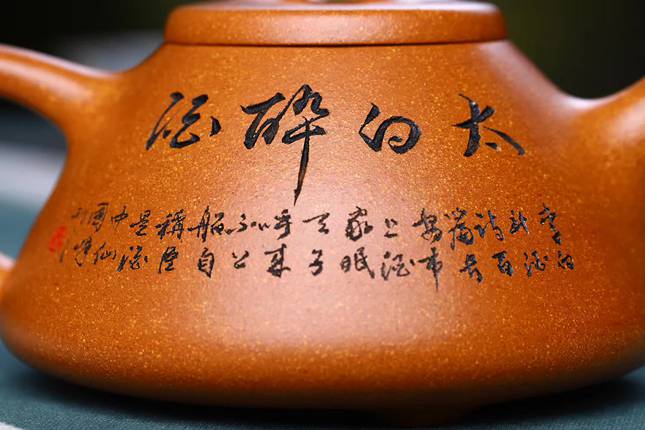 太白醉酒
李白
斗酒
詩百
篇长
安市
上酒
家眠
天子
呼來
不上
船自
稱臣
是酒
中仙